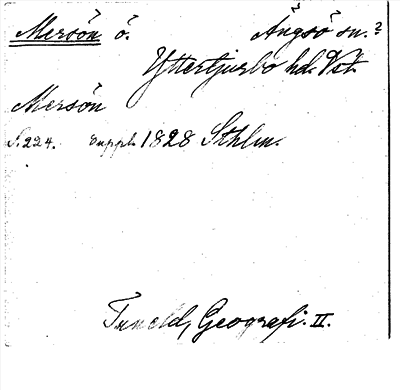 Mersön ö. Ängsö sn.?
Yttertjurbo hd. Vst.
Mersön
S. 224. suppl. 1828 Sthlm.
Tuneld, Geografi. II.